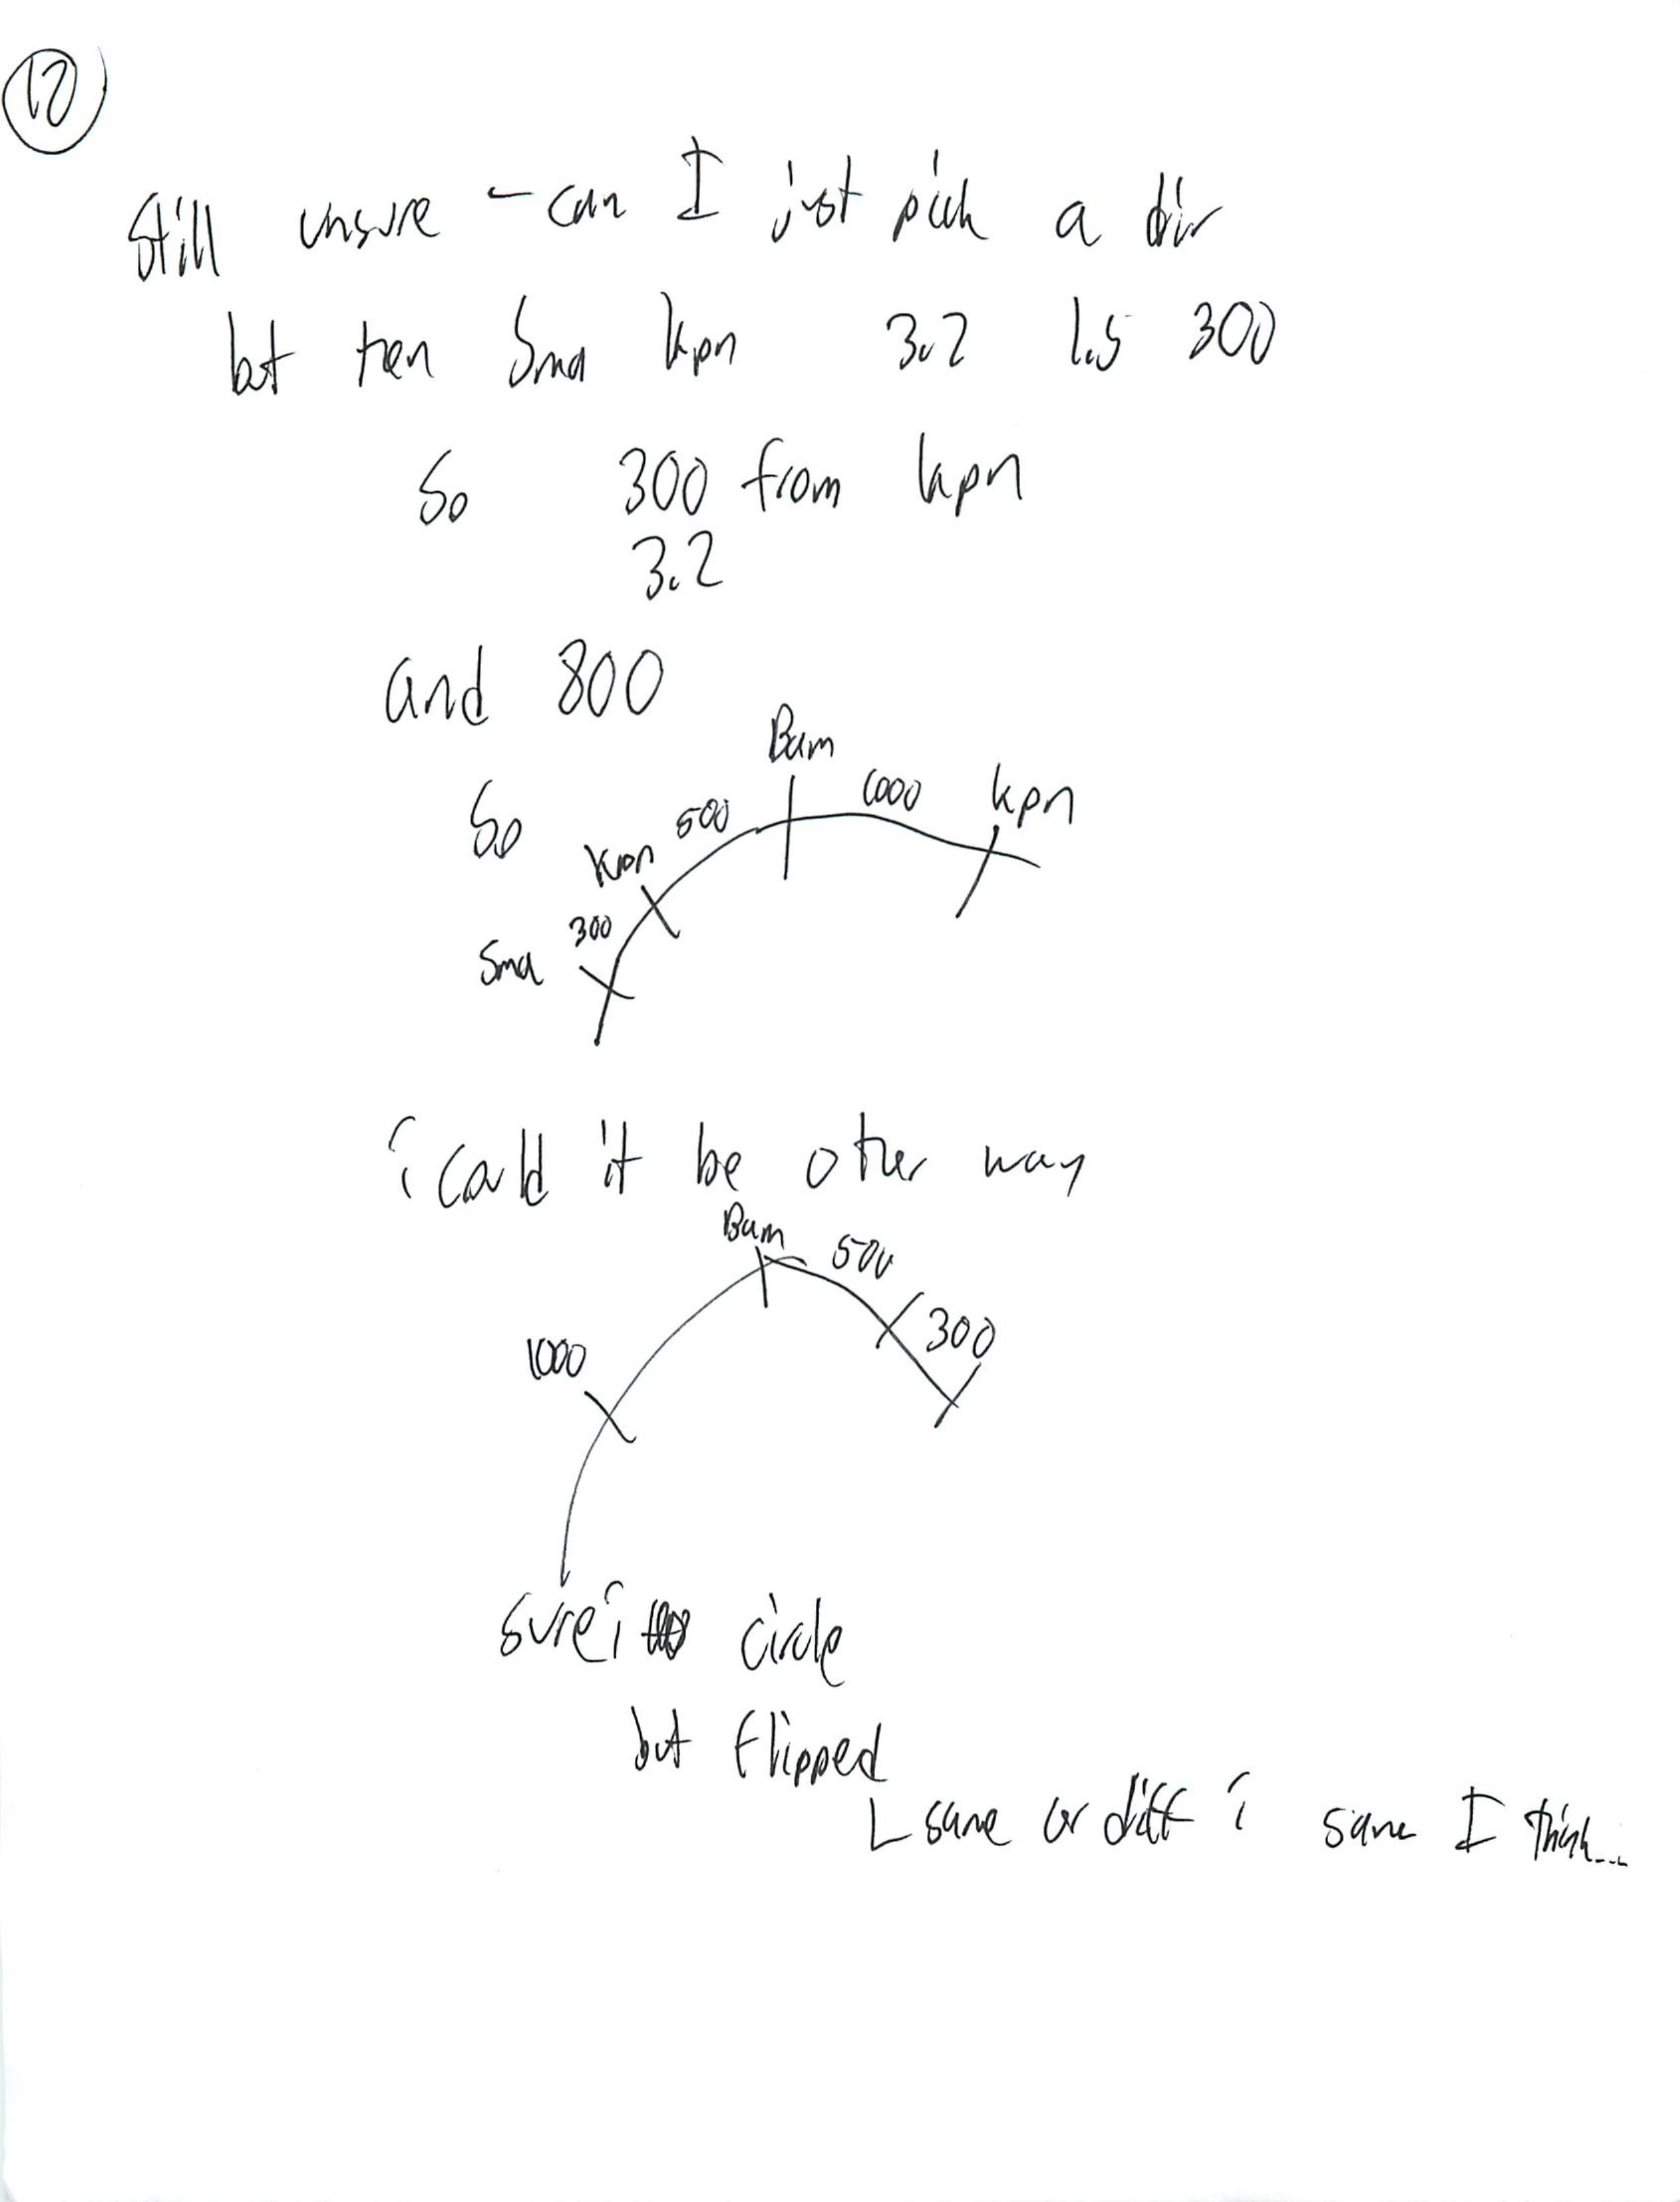 12
Still unsure - can I just pick a dir
but then Sma kpn 3.2 1.5 300
So 300 from kpn
3.2
and 800
Bam
So 500 1000 kpn
kpn
300
Sma
¿ could it be other way
Bam 500
300
1000
sure ¿ circle
but flipped
same or diff ? same I think...